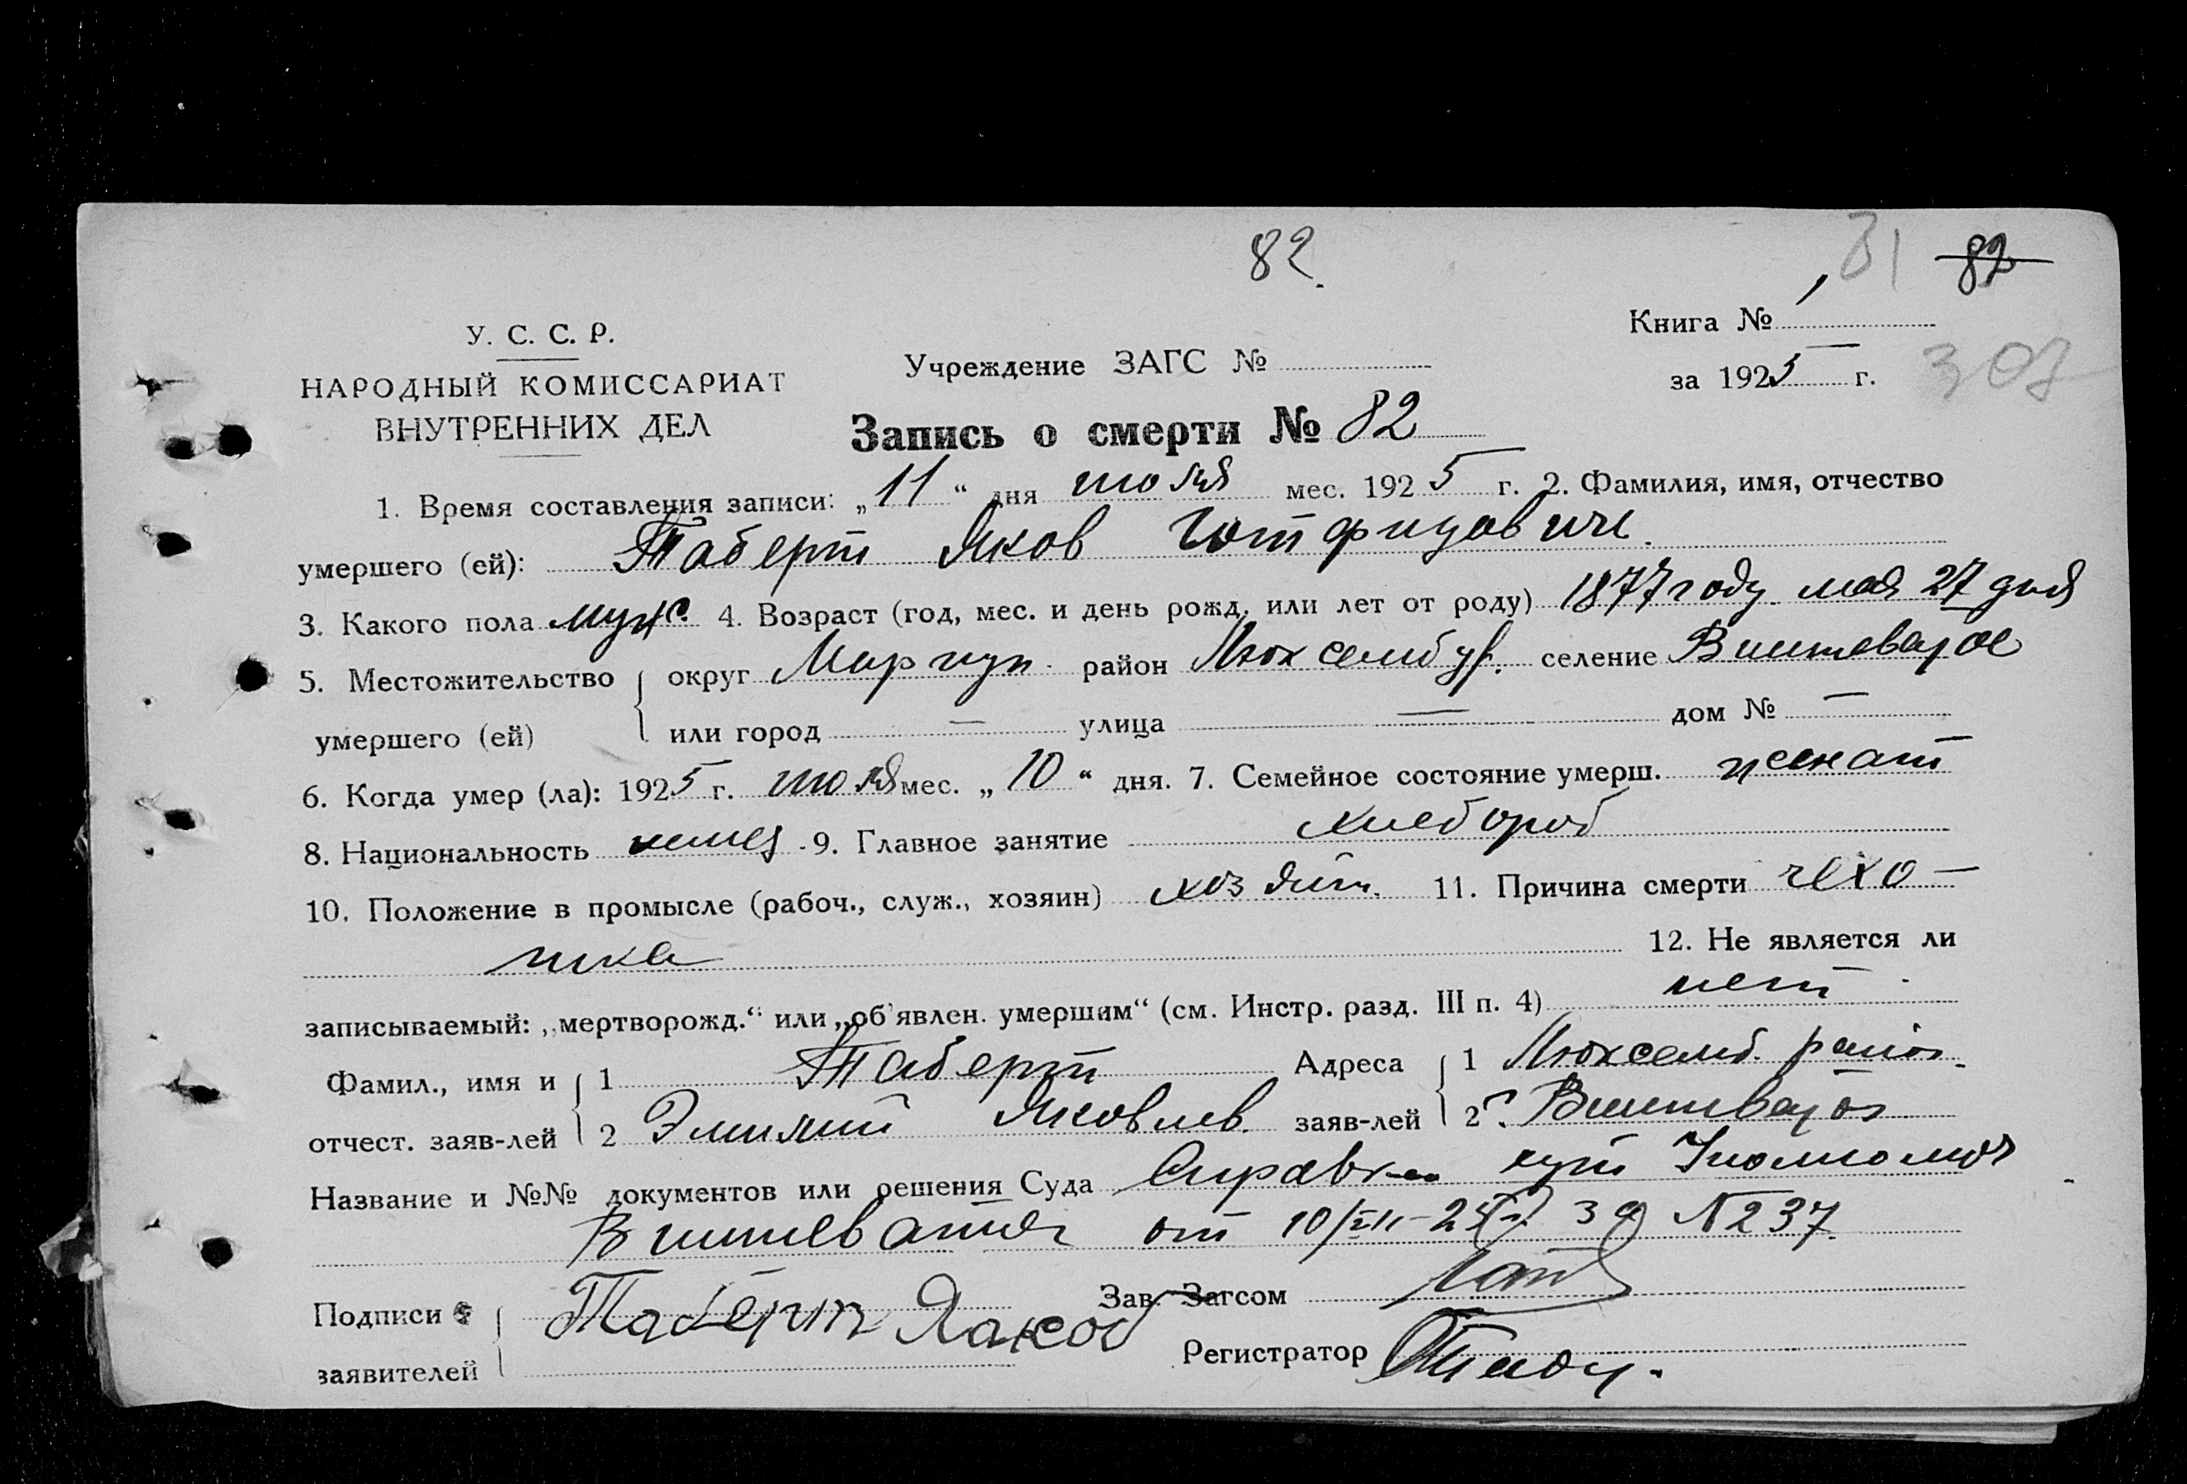 82.
31 82
У. С. С. Р.
НАРОДНЫЙ КОМИССАРИАТ
ВНУТРЕННИХ ДЕЛ
Учреждение ЗАГС №
Книга № 1
за 1925 г.
307
Запись о смерти № 82
1. Время составления записи: „11“ дня июля мес. 1925 г. 2. Фамилия, имя, отчество
умершего (ей): Таберт Яков Готфридович.
3. Какого пола муж. 4. Возраст (год, мес. и день рожд. или лет от роду) 1877 году мая 27 дня
5. Местожительство умершего (ей) округ Мариуп. район Люксембур. селение Вишневатое
или город — улица — дом № —
6. Когда умер (ла): 1925 г. июля мес. „10“ дня. 7. Семейное состояние умерш. женат
8. Национальность немец 9. Главное занятие хлебороб
10. Положение в промысле (рабоч., служ., хозяин) хозяин. 11. Причина смерти чахо-
тка
12. Не является ли
записываемый: „мертворожд.“ или „об'явлен. умершим“ (см. Инстр. разд. III п. 4) нет
Фамил., имя и 1 Таберт Адреса 1 Люксемб. район.
отчест. заяв-лей 2 Яковлев. заяв-лей 2
Название и №№ документов или решения Суда Справка
от 10/VII-25 г. за № 237.
Подписи заявителей Таберт Яаков
Зав. Загсом
Регистратор